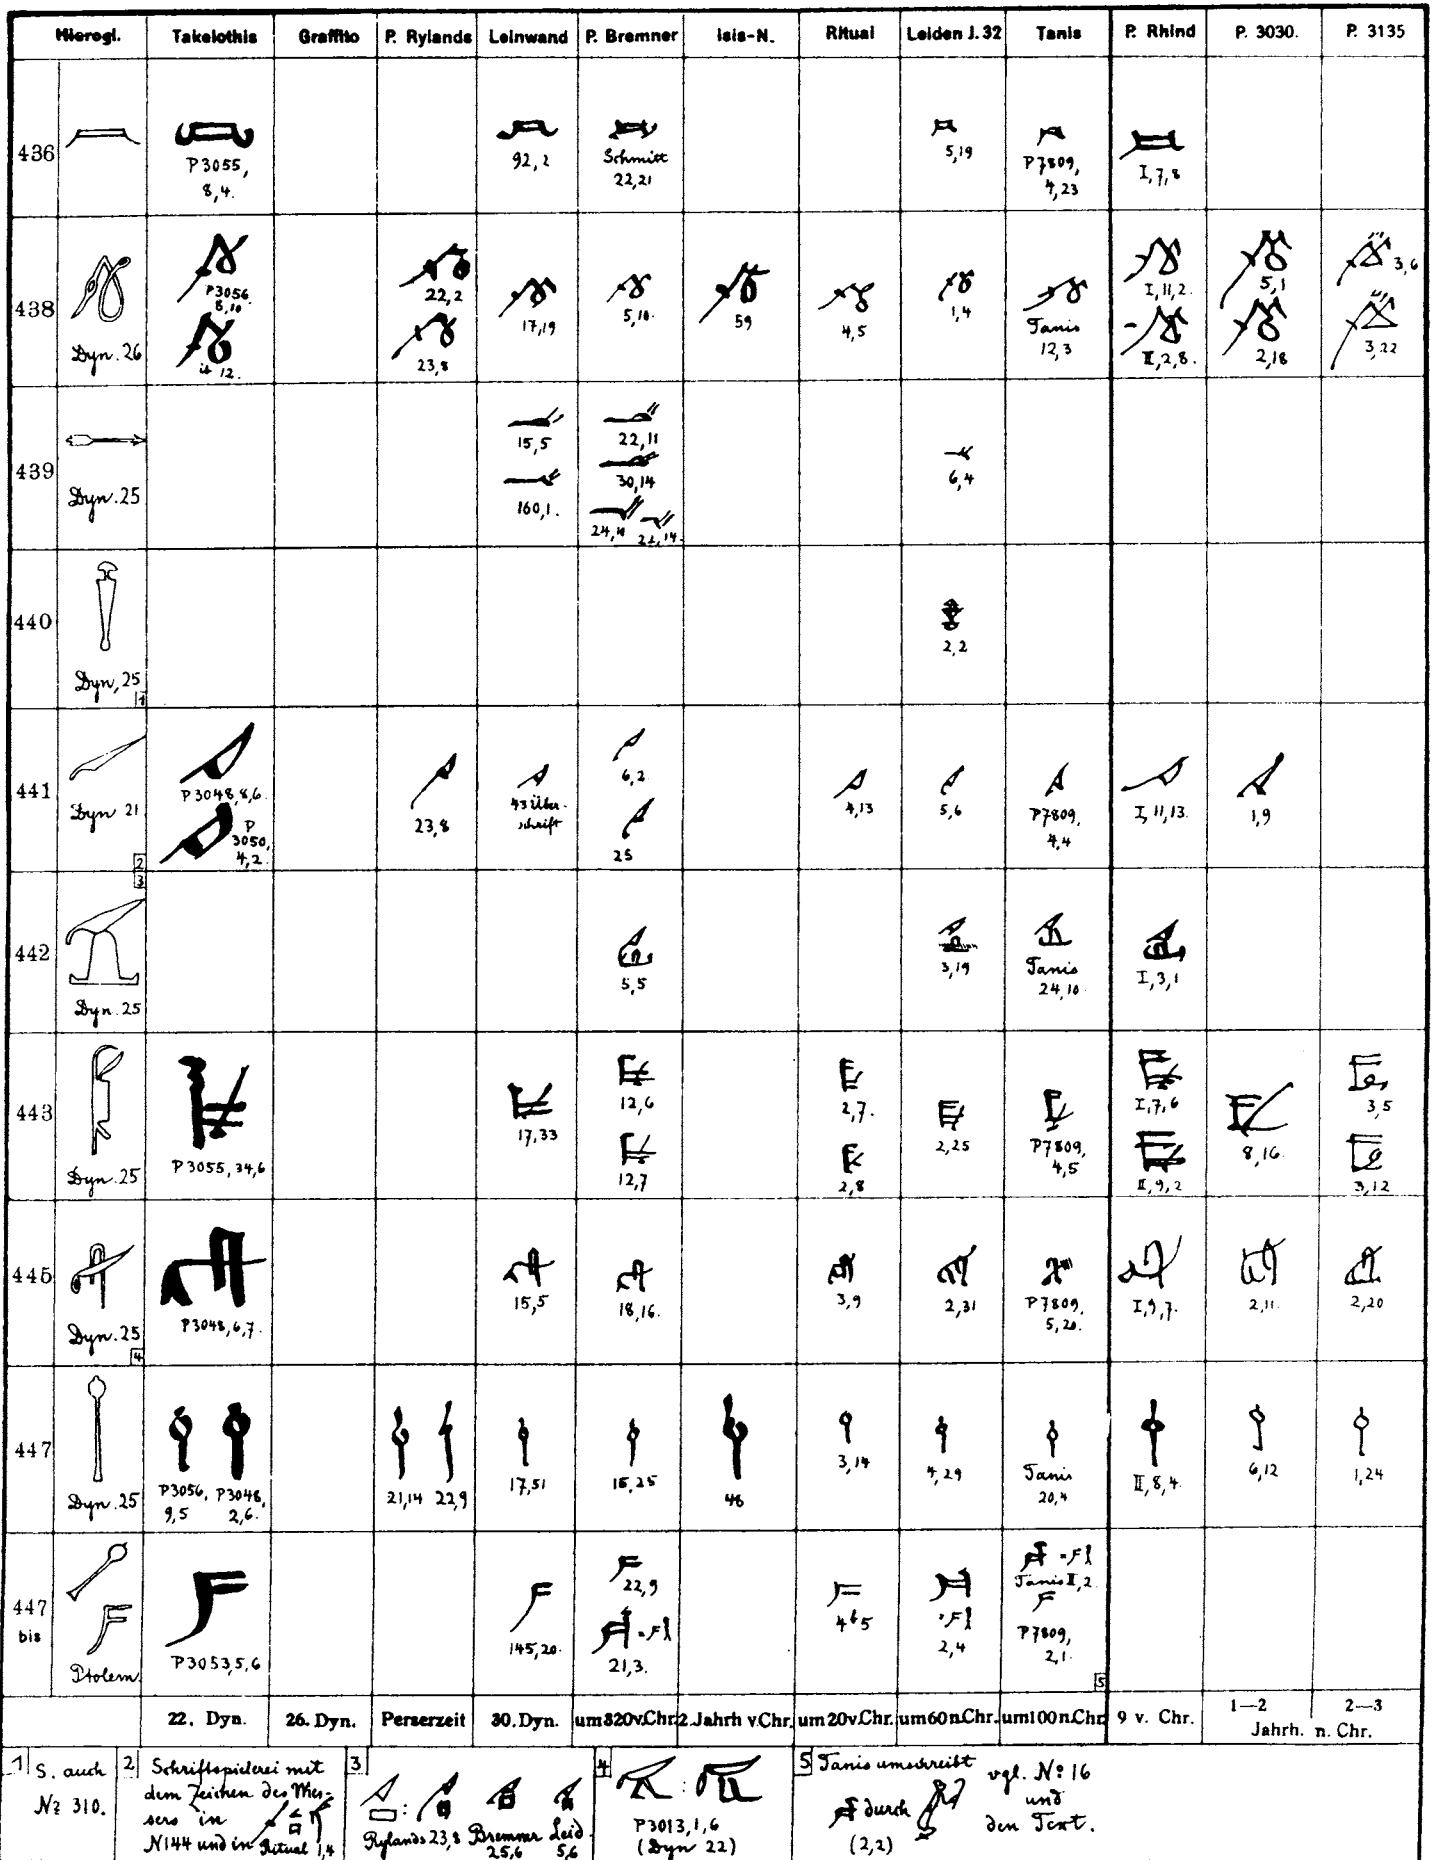 Hierogl. Takelothis Graffito P. Rylands Leinwand P. Bremner Isis-N. Ritual Leiden J. 32 Tanis P. Rhind P. 3030. P. 3135
436
P3055,
8,4.
92,2
Schmitt
22,21
5,19
P7809,
4,23
I,7,8
438
Dyn. 26
P3056
8,10
ib 12.
22,2
23,8
17,19
5,10.
59
4,5
1,4
Tanis
12,3
I,11,2.
II,2,8.
5,1
2,18
3,6
3,22
439
Dyn. 25
15,5
160,1.
22,11
30,14
6,4
440
Dyn, 25
1
2,2
441
Dyn 21
2
P3048,8,6.
P
3050,
4,2.
23,8
43 Über-
schrift
6,2.
25
4,13
5,6
P7809,
4,4
I,11,13.
1,9
442
3
Dyn. 25
5,5
3,19
Tanis
24,10.
I,3,1
443
Dyn. 25
P3055,34,6
17,33
12,6
12,7
2,7.
2,8
2,25
P7809,
4,5
I,7,6
II,9,2
8,16.
3,5
3,12
445
Dyn. 25
4
P3048,6,7.
15,5
18,16.
3,9
2,31
P7809,
5,20.
I,9,7.
2,11.
2,20
447
Dyn. 25
P3056,
9,5
P3048,
2,6.
21,14 22,9
17,51
15,25
46
3,14
4,29
Tanis
20,4
II,8,4.
6,12
1,24
447
bis
Ptolem.
P3053,5,6
145,20.
22,9
21,3.
2,4
Tanis II,2.
P7809,
2,1.
5
22. Dyn. 26. Dyn. Perserzeit 30. Dyn. um320v.Chr. 2.Jahrh v.Chr. um20v.Chr. um60n.Chr. um100n.Chr 9 v. Chr. 1—2 2—3
Jahrh. n. Chr.
1 S. auch
No 310.
2 Schriftspielerei mit
dem Zeichen des Mes-
sers in
N144 und in Ritual 1,4
3
Rylands 23,8 Bremner 25,6 Leid. 5,6
4
P3013,1,6
(Dyn 22)
5 Tanis umschreibt
durch
(2,2)
vgl. No 16
und
den Text.